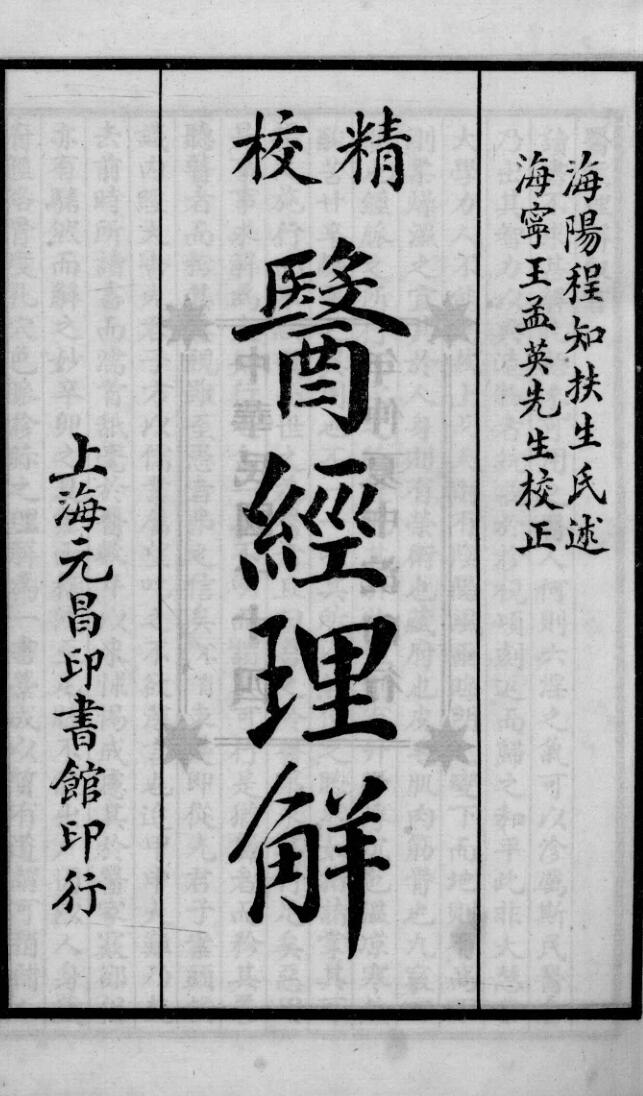 海陽程知扶生氏述
海寧王孟英先生校正
精校
醫經理解
上海元昌印書館印行